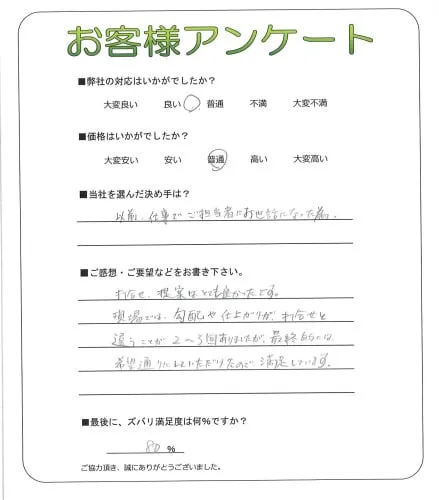 お客様アンケート
■弊社の対応はいかがでしたか?
大変良い 良い 普通 不満 大変不満
■価格はいかがでしたか?
大変安い 安い 普通 高い 大変高い
■当社を選んだ決め手は?
以前、仕事でご担当者にお世話になった為。
■ご感想・ご要望などをお書き下さい。
打合せ、提案はとても良かったです。
現場では、勾配や仕上がりが、打合せと
違うことが2〜3回ありましたが、最終的には
希望通りにしていただけたので、満足しています。
■最後に、ズバリ満足度は何%ですか?
80 %
ご協力頂き、誠にありがとうございました。